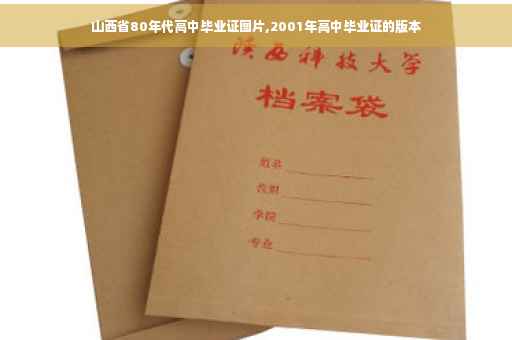 山西省80年代高中毕业证图片,2001年高中毕业证的版本
陕西科技大学
档案袋
姓名
学院
专业